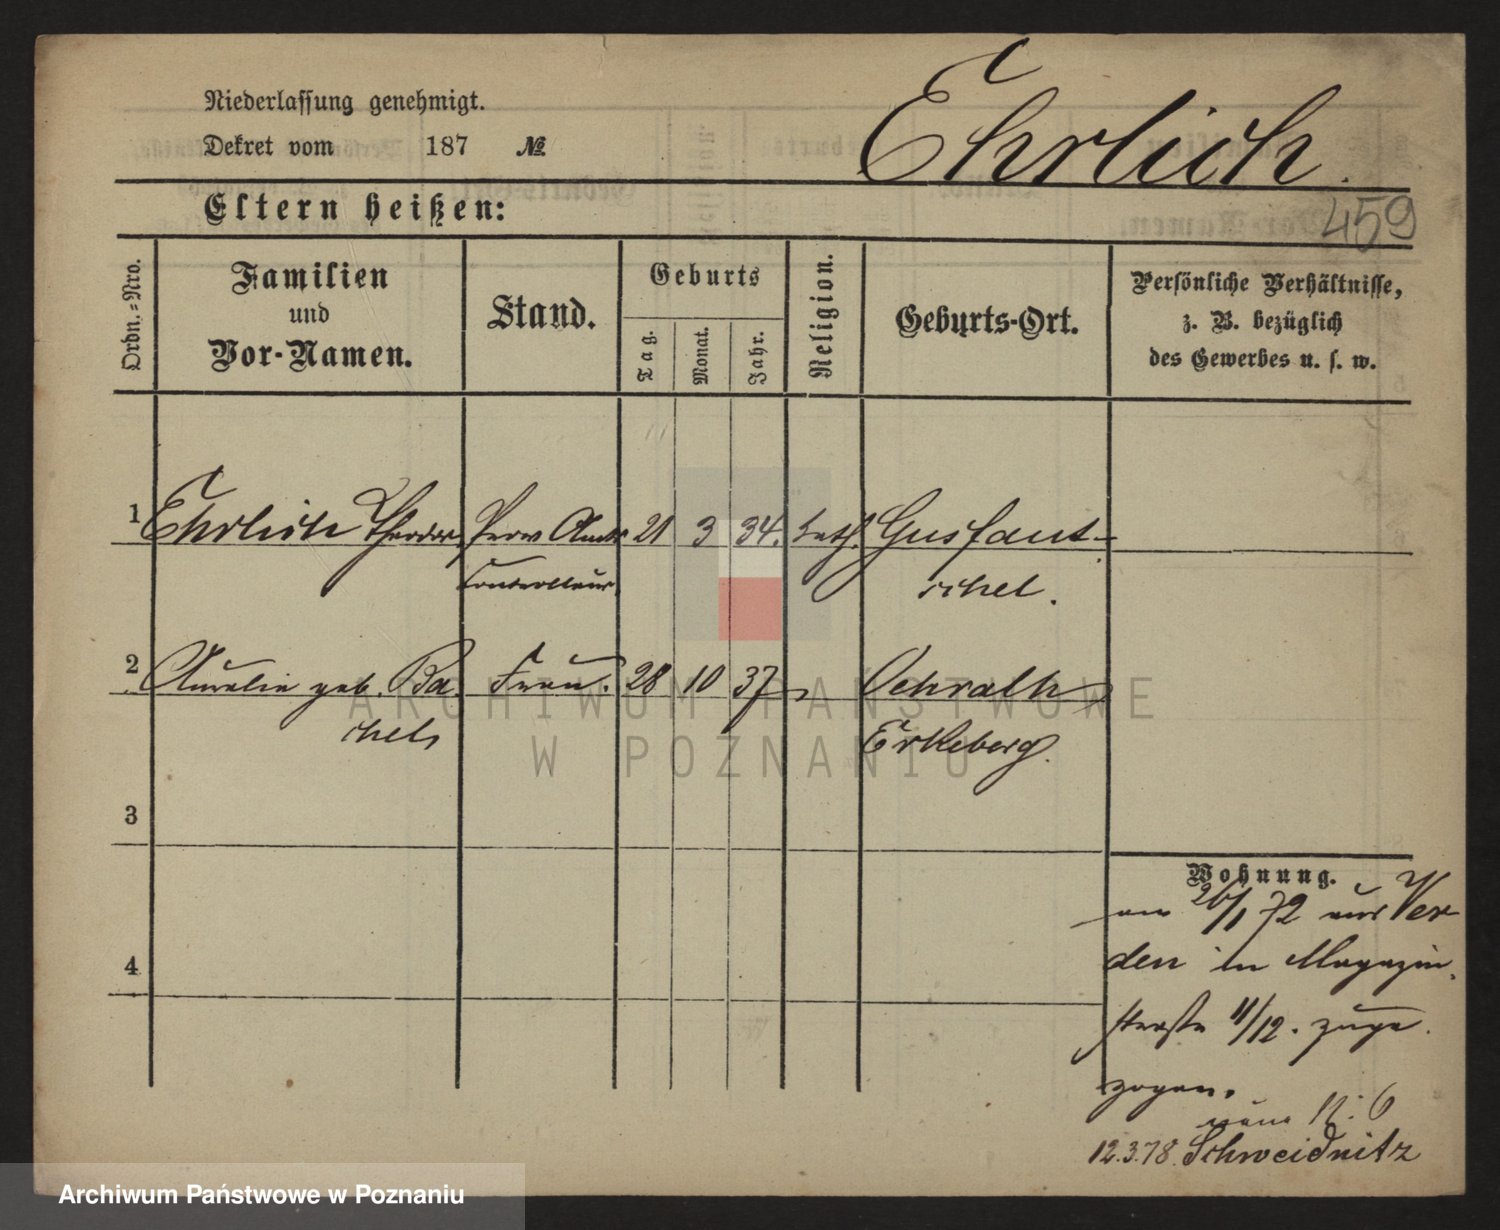 Niederlassung genehmigt.
Dekret vom 187 №
Ehrlich.
Eltern heißen:
459
Ordn.=Nro.
Familien
und
Vor-Namen.
Stand.
Geburts
Tag.
Monat.
Jahr.
Religion.
Geburts-Ort.
Persönliche Verhältnisse,
z. B. bezüglich
des Gewerbes u. s. w.
1 Ehrlich Theodor, Prov Amts 21 3 34. kath. Gusfant-
Controlleur. schel.
2 Aurelie geb. Ba Frau. 28 10 37 Ochralh
chel, Erkeberg.
3
4
Wohnung.
am 26/1 72 aus Ver
den in Magazin
straße 11/12. zuge
zogen.
N: 6
12.3.78. Schweidnitz
ARCHIWUM PAŃSTWOWE
W POZNANIU
Archiwum Państwowe w Poznaniu